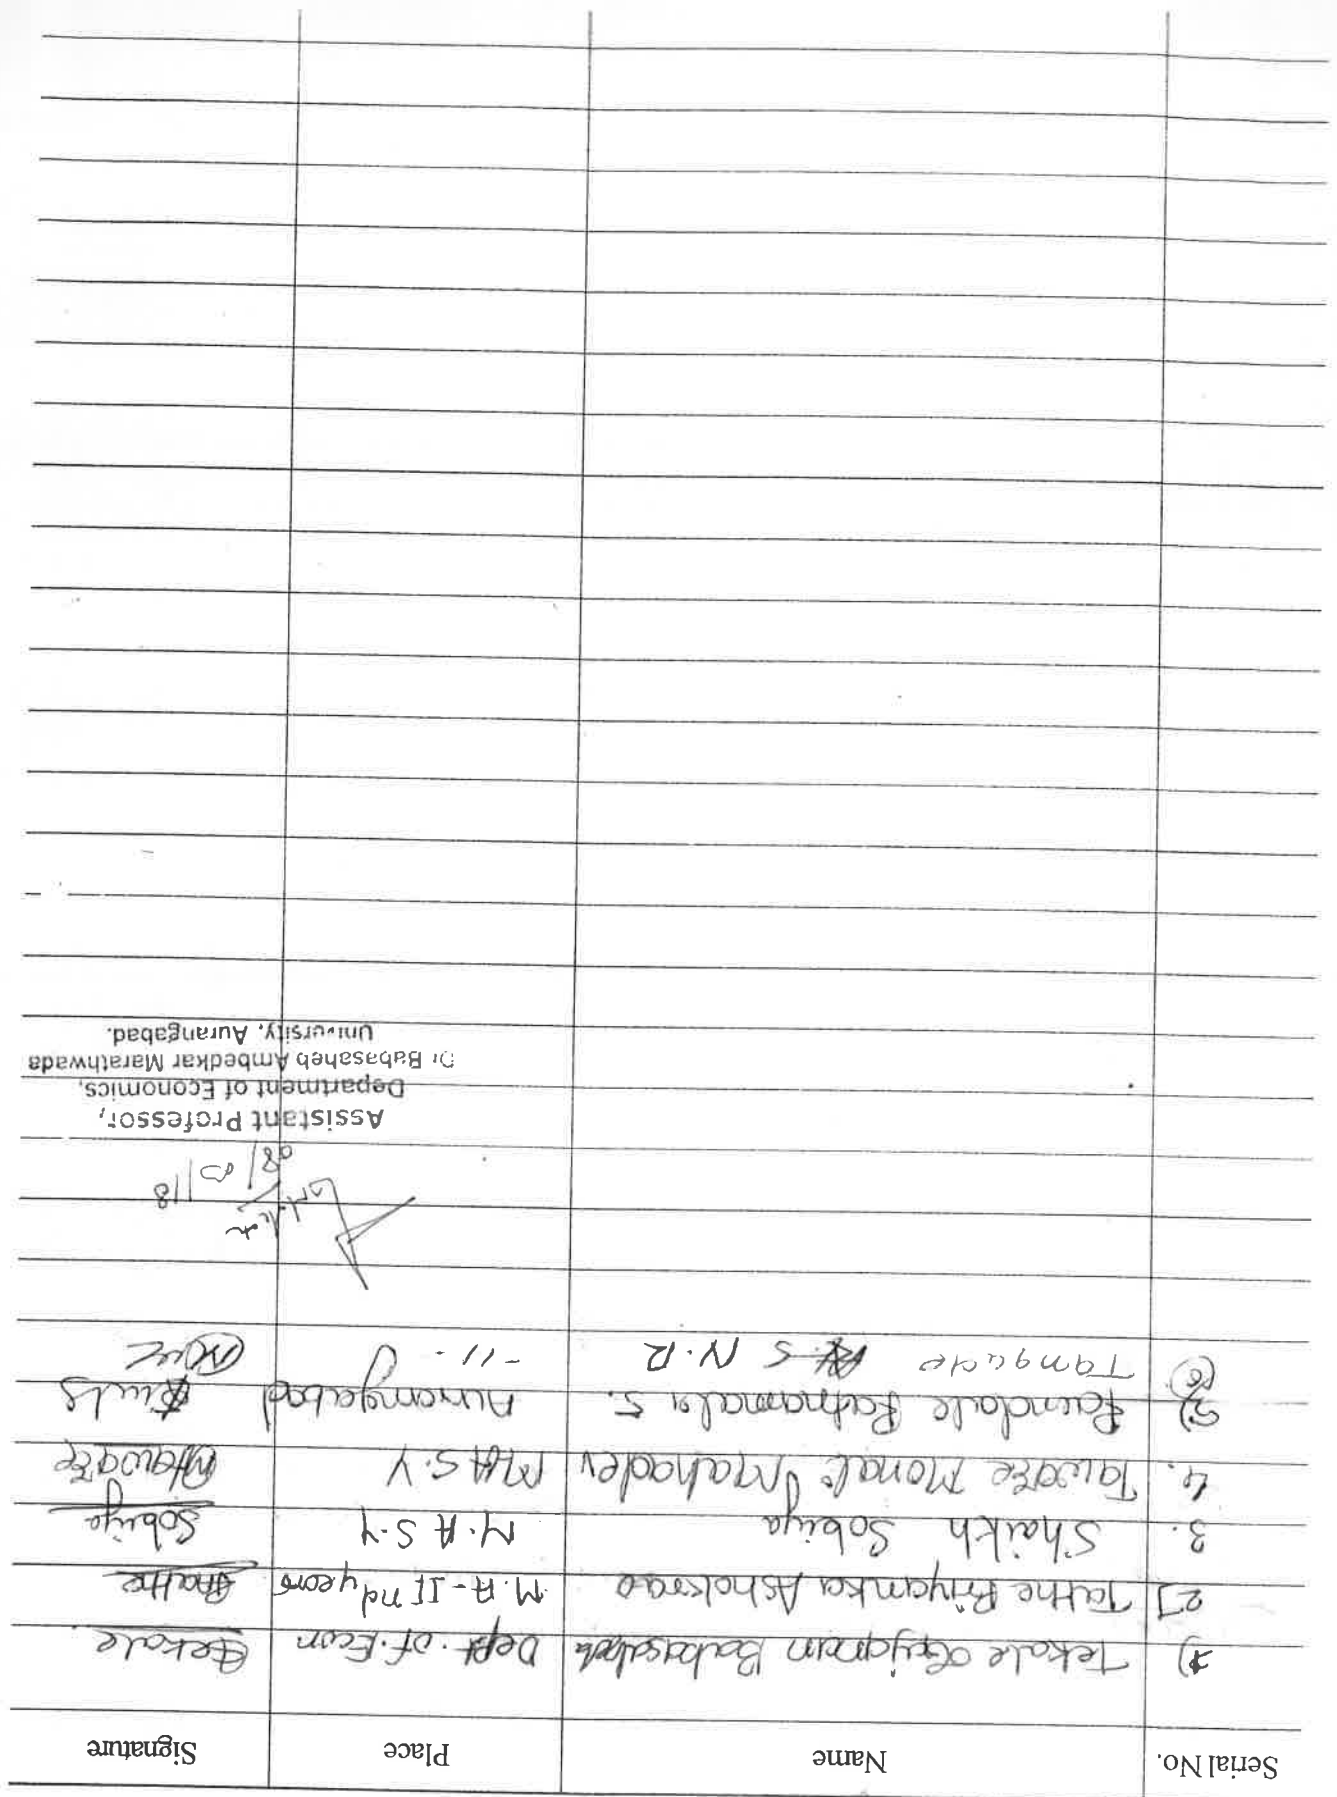 Serial No. Name Place Signature
1) Tekale Babasaheb Dept. of. Econ Tekale
2] Tathe Priyanka Ashokrao M.A-IInd year Tathe
3. Shaikh Sobiya M.A S.Y Sobiya
4. Tawate Monali Mahadev MA S.Y
5) Ratnamala S. Aurangabad
6) Tangade S N.R -11-
08/ /18
Assistant Professor,
Department of Economics,
Dr Babasaheb Ambedkar Marathwada
University, Aurangabad.